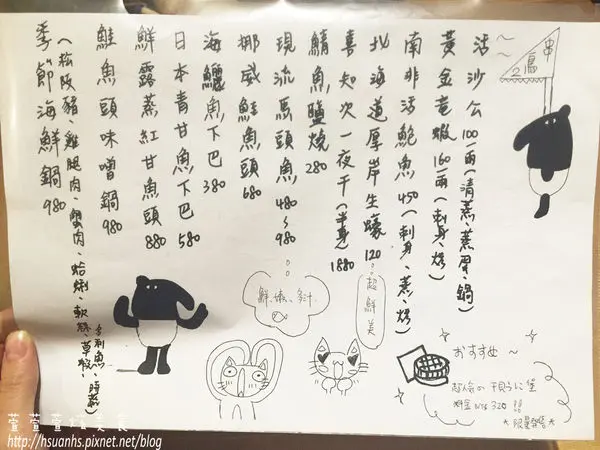 活沙公 100一兩(清蒸、蒸蛋、鍋)
黃金龍蝦 160一兩(刺身、烤)
南非活鮑魚 450(刺身、蒸、烤)
北海道厚岸生蠔 120
超鮮美
喜知次一夜干(半身)1880
鯖魚鹽燒 280
現流馬頭魚 480~980
鮮、嫩、多汁
挪威鮭魚頭 680
海鱺魚下巴 380
日本青甘魚下巴 580
鮮露蒸紅甘魚頭 880
鮭魚頭味噌鍋 980
季節海鮮鍋 980
(松阪豬、雞腿肉、蟹肉、蛤蜊、軟絲、草蝦、多利魚、時蔬)
串鳥
2
おすすめ~
干貝うに堡
NT$ 320
*限量發售*
萱萱萱愛美食
http://hsuanhs.pixnet.net/blog